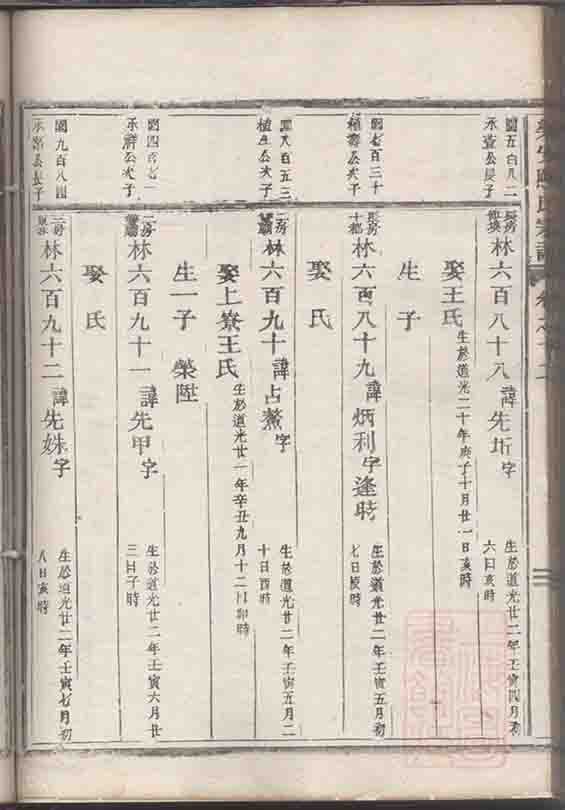 園五百八二
承萱公長子
長房
林六百八十八 諱先圻字
生於道光廿二年壬寅四月初
六日亥時
娶王氏
生於道光二十年庚子十月廿一日亥時
生子
園七百三十
植壽公次子
長房
十都
林六百八十九 諱炳利字逢時
生於道光廿二年壬寅五月初
七日
娶氏
園八百五三
植生公次子
二房
林六百九十 諱占鰲字
生於道光廿二年壬寅五月二
十日酉時
娶上寮王氏
生於道光廿一年辛丑九月十二日卯時
生一子 榮陞
園四百七一
承 公次子
二房
林六百九十一 諱先甲字
生於道光廿二年壬寅六月廿
三日子時
娶氏
園九百八四
承 公長子
三房
林六百九十二 諱先姝字
生於道光廿二年壬寅七月初
八日亥時